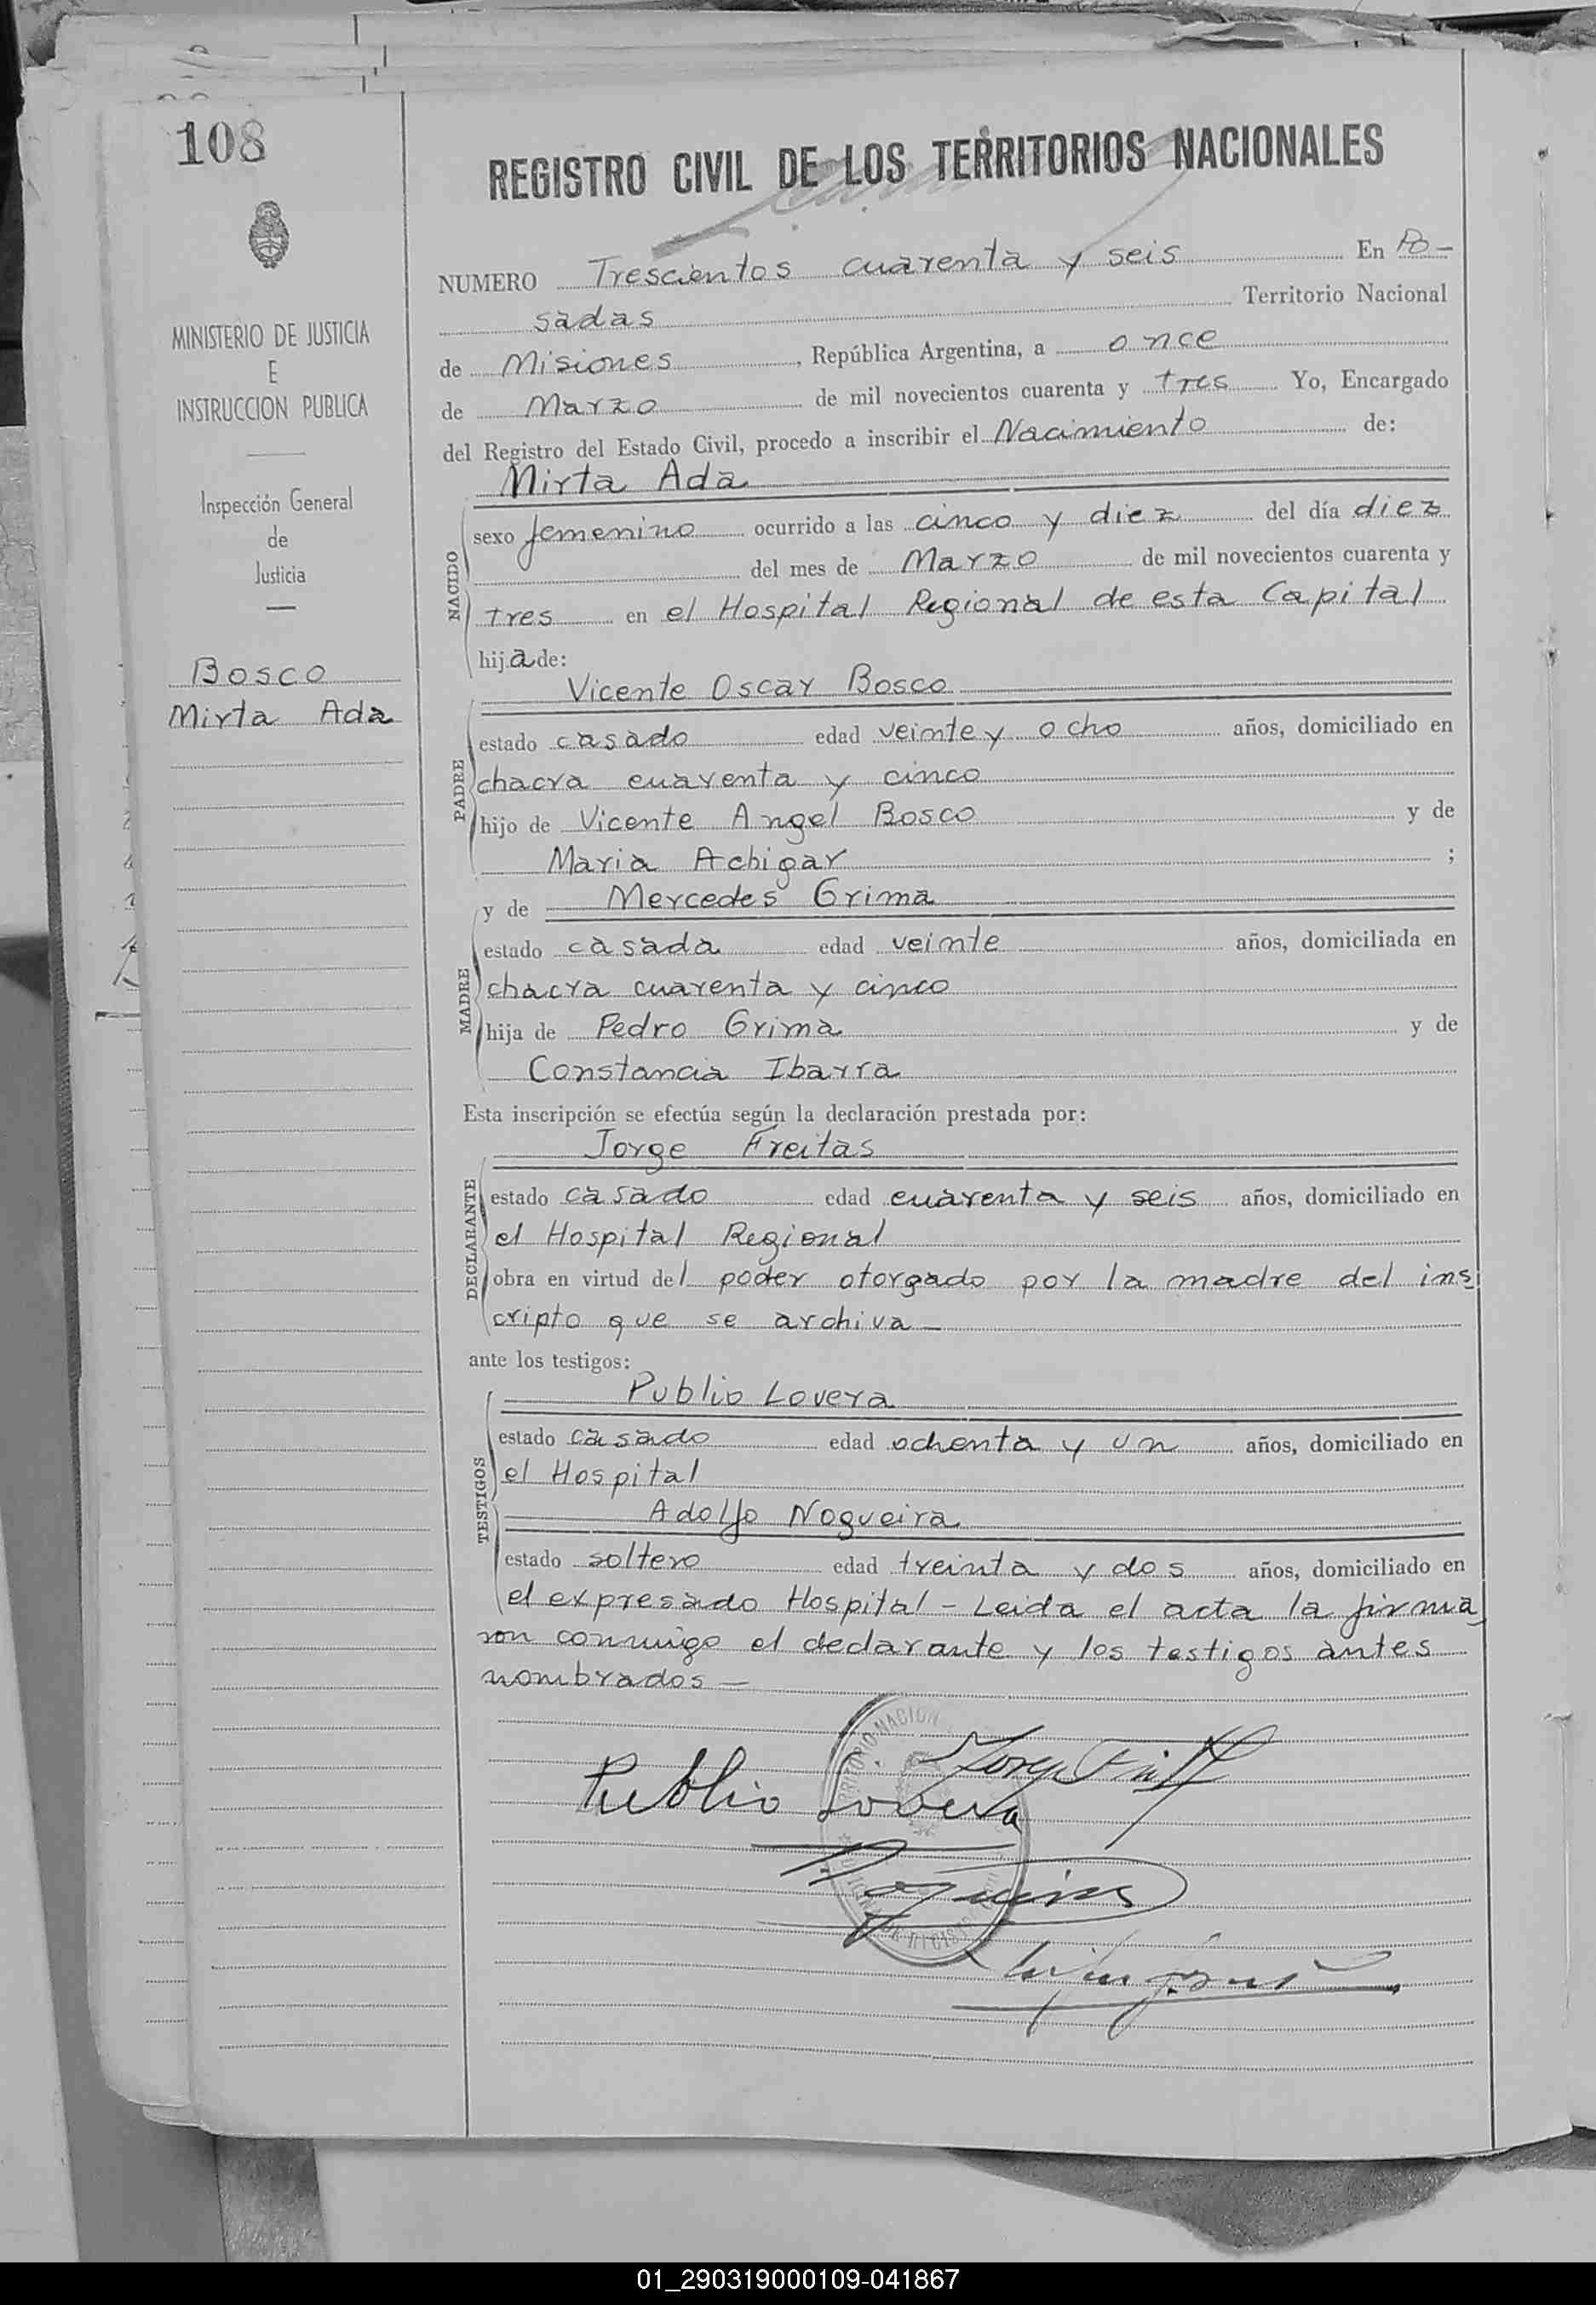 108
REGISTRO CIVIL DE LOS TERRITORIOS NACIONALES
NUMERO Trescientos cuarenta y seis En Po-
sadas Territorio Nacional
de Misiones, República Argentina, a once
de Marzo de mil novecientos cuarenta y tres Yo, Encargado
del Registro del Estado Civil, procedo a inscribir el Nacimiento de:
Mirta Ada
sexo femenino ocurrido a las cinco y diez del día diez
del mes de Marzo de mil novecientos cuarenta y
tres en el Hospital Regional de esta Capital
hija de:
NACIDO
MINISTERIO DE JUSTICIA
E
INSTRUCCION PUBLICA
Inspección General
de
Justicia
Bosco
Mirta Ada
Vicente Oscar Bosco
estado casado edad veinte y ocho años, domiciliado en
chacra cuarenta y cinco
hijo de Vicente Angel Bosco y de
Maria Achigar ;
PADRE
y de Mercedes Grima
estado casada edad veinte años, domiciliada en
chacra cuarenta y cinco
hija de Pedro Grima y de
Constancia Ibarra
MADRE
Esta inscripción se efectúa según la declaración prestada por:
Jorge Freitas
estado casado edad cuarenta y seis años, domiciliado en
el Hospital Regional
obra en virtud del poder otorgado por la madre del ins
cripto que se archiva -
DECLARANTE
ante los testigos:
Publio Lovera
estado casado edad ochenta y un años, domiciliado en
el Hospital
Adolfo Nogueira
estado soltero edad treinta y dos años, domiciliado en
el expresado Hospital - Leida el acta la firma
ron conmigo el declarante y los testigos antes
nombrados -
TESTIGOS
Publio Lovera
01_290319000109-041867